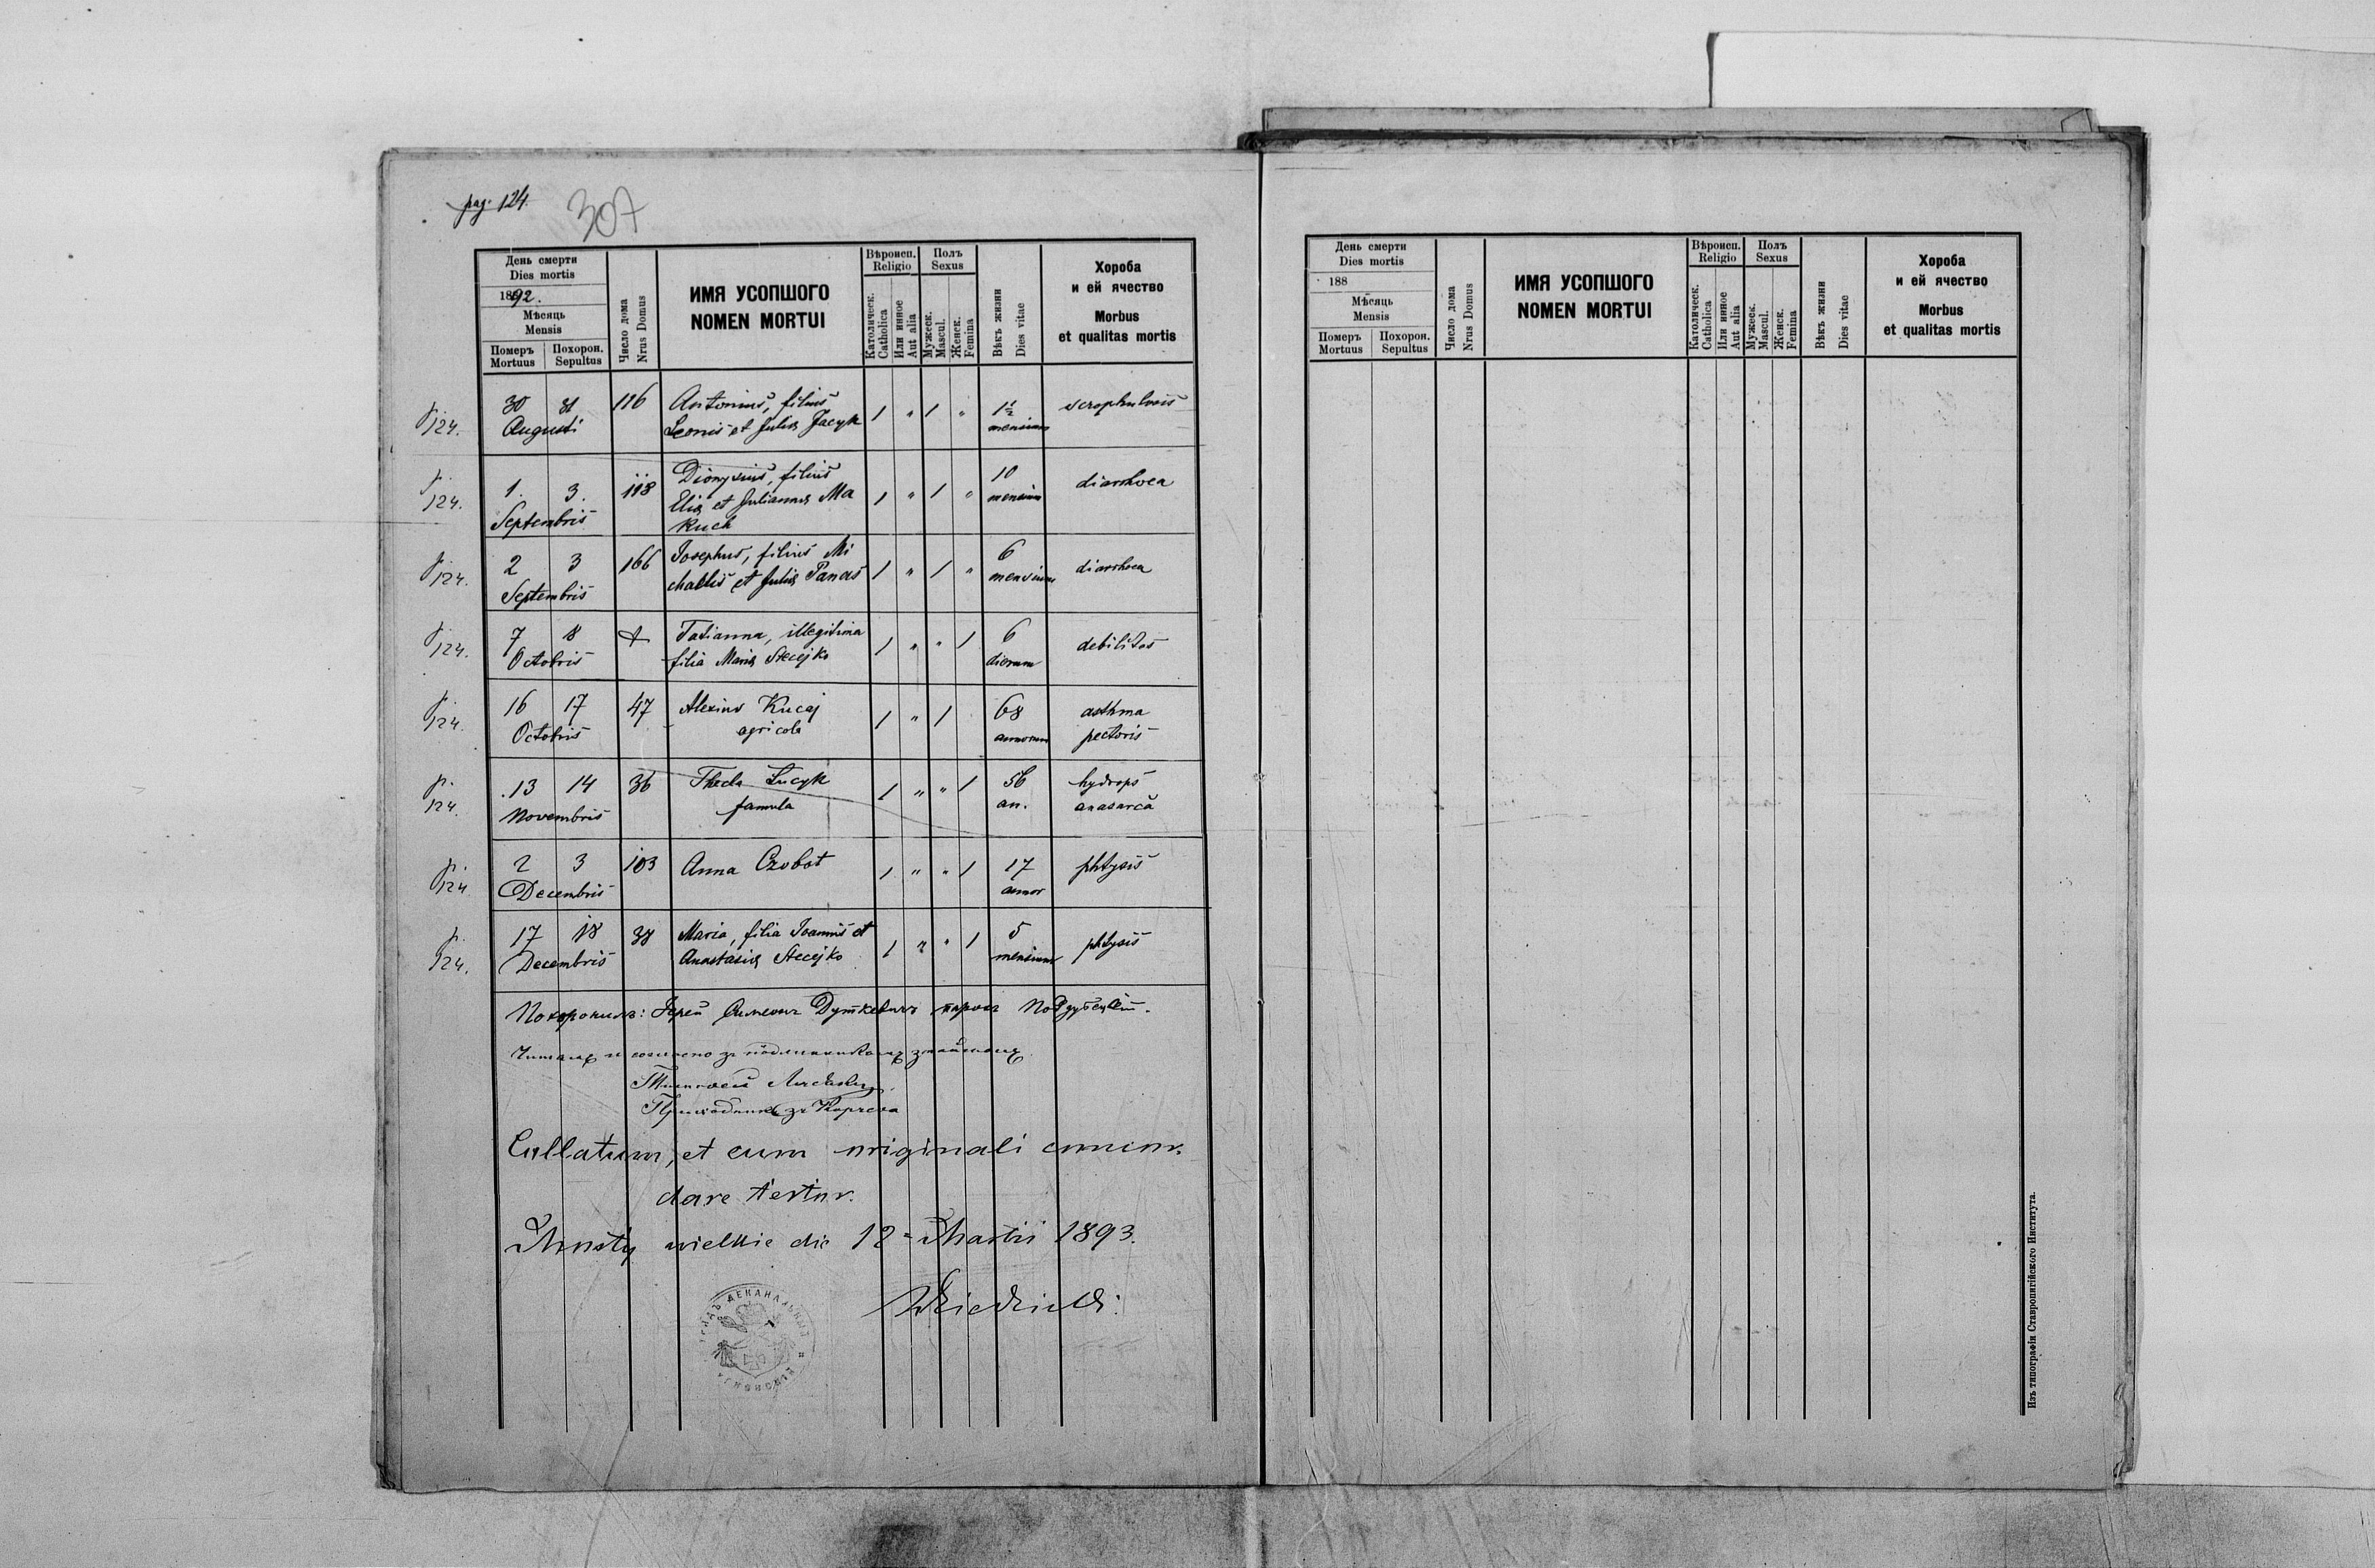 pag. 124.
307
День смерти
Dies mortis
1892.
Мѣсяць
Mensis
Померъ Похорон.
Mortuus Sepultus
Число дома
Nrus Domus
ИМЯ УСОПШОГО
NOMEN MORTUI
Вѣроисп.
Religio
Католическ.
Catholica
Или инное
Aut alia
Полъ
Sexus
Мужеск.
Mascul.
Женск.
Femina
Вѣкъ жизни
Dies vitae
Хороба
и ей ячество
Morbus
et qualitas mortis
p. 124.
30 31 116 Antonius, filius 1 " 1 " 1½ scrophulosis
Augusti Leonis et Juliæ Jacyk mensium
p. 124.
Dionysius, filius 10
1. 3. 118 Eliæ et Juliannæ Ma 1 " 1 " mensium diarrhoea
Septembris kuch
p. 124.
2 3 166 Josephus, filius Mi 1 " 1 " 6 diarrhoea
Septembris chaelis et Juliæ Panas mensium
p. 124.
7 8 Tatianna, illegitima 1 " " 1 6 debilitas
Octobris filia Mariæ Stecejko dierum
p. 124.
16 17 47 Alexius Kucaj 1 " 1 68 asthma
Octobris agricola annorum pectoris
p. 124.
13 14 36 Thecla Lucyk 1 " " 1 56 hydrops
Novembris famula an. anasarca
p. 124
2 3 103 Anna Czobot 1 " " 1 17 phtysis
Decembris annor
p. 124.
17 18 38 Maria, filia Joannis et 1 " " 1 5 phtysis
Decembris Anastasiæ Stecejko mensium
Похоронилъ: Іерей Симеонъ Дуткевичъ парохъ
Collatum, et cum originali concor
dare testor.
Mosty wielkie die 12 Martii 1893.
День смерти
Dies mortis
188
Мѣсяць
Mensis
Померъ Похорон.
Mortuus Sepultus
Число дома
Nrus Domus
ИМЯ УСОПШОГО
NOMEN MORTUI
Вѣроисп.
Religio
Католическ.
Catholica
Или инное
Aut alia
Полъ
Sexus
Мужеск.
Mascul.
Женск.
Femina
Вѣкъ жизни
Dies vitae
Хороба
и ей ячество
Morbus
et qualitas mortis
Изъ типографіи Ставропигійского Института.